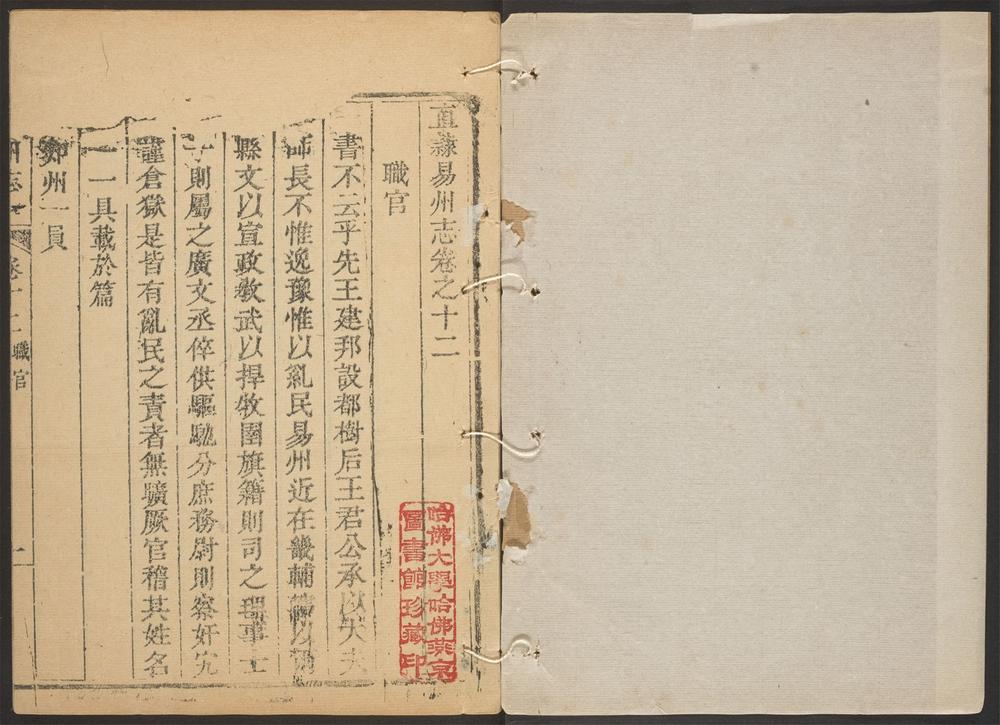 直隸易州志卷之十二
職官
書不云乎先王建邦設都樹后王君公承以大夫
師長不惟逸豫惟以亂民易州近在畿輔
縣文以宣政教武以捍牧圉旗籍則司之理事
則屬之廣文丞倅供驅馳分庶務尉則察奸宄
謹倉獄是皆有亂民之責者無曠厥官稽其姓名
一一具載於篇
知州一員
州志
卷十二職官
一
哈佛大學哈佛燕京
圖書館珍藏印